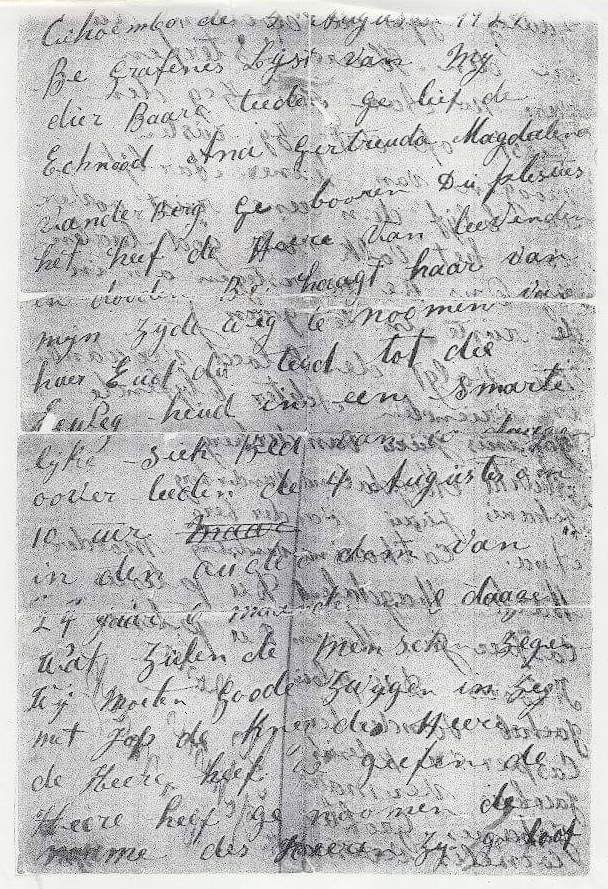 de Augustus 19
Be Grafenes Lyst van My
dier Baare lieden ge lief de
Echnood Ana Gertruuda Magdalena
vander Berg ge booren Du plesies
het heef de Heere van leevenden
in dooden Be haagt haar van
mijn zyde weg te noomen
haer Eust du tied tot die
heid in een smarte
lyke siek Bed van
oover leeden de 4 Augustus om
10 uur
in den oude dom van
maande daage
wat zulen de menschen zegen
wy moeten Goode zwygen in zeg
met Jop de Knegt des Heere
de Heere heef ge geefen de
Heere heef ge noomen de
naame des Heeren zy ge loof